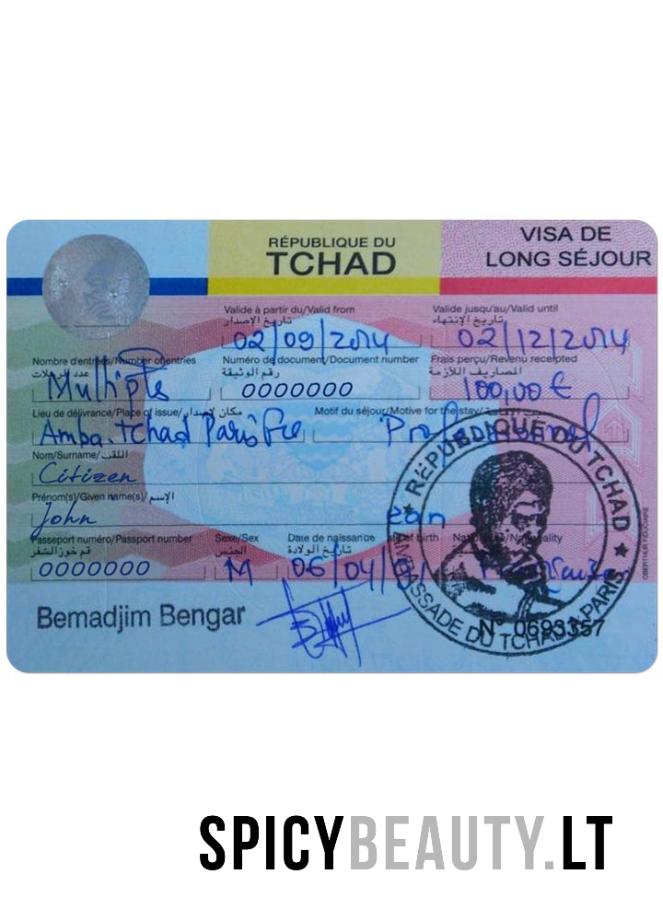 RÉPUBLIQUE DU
TCHAD
VISA DE
LONG SÉJOUR
Valide à partir du/Valid from
تاريخ الإصدار
02/09/2014
Valide jusqu'au/Valid until
تاريخ الإنتهاء
02/12/2014
Nombre d'entrées/Number of entries
عدد الرحلات
Multiple
Numéro de document/Document number
رقم الوثيقة
0000000
Frais perçu/Revenu receipted
المصاريف اللازمة
100,00 €
Lieu de délivrance/Place of issue/مكان لإصدار
Amba. Tchad Paris
Motif du séjour/Motive for the stay/
Nom/Surname/اللقب
Citizen
Prénom(s)/Given name(s)/الإسم
John
Passeport numéro/Passport number
0000000
Sexe/Sex
الجنس
M
Date de naissance
of birth
تاريخ الولادة
06/04/
Bemadjim Bengar
RÉPUBLIQUE DU TCHAD
AMBASSADE DU TCHAD A PARIS
N° 0693357
SPICYBEAUTY.LT